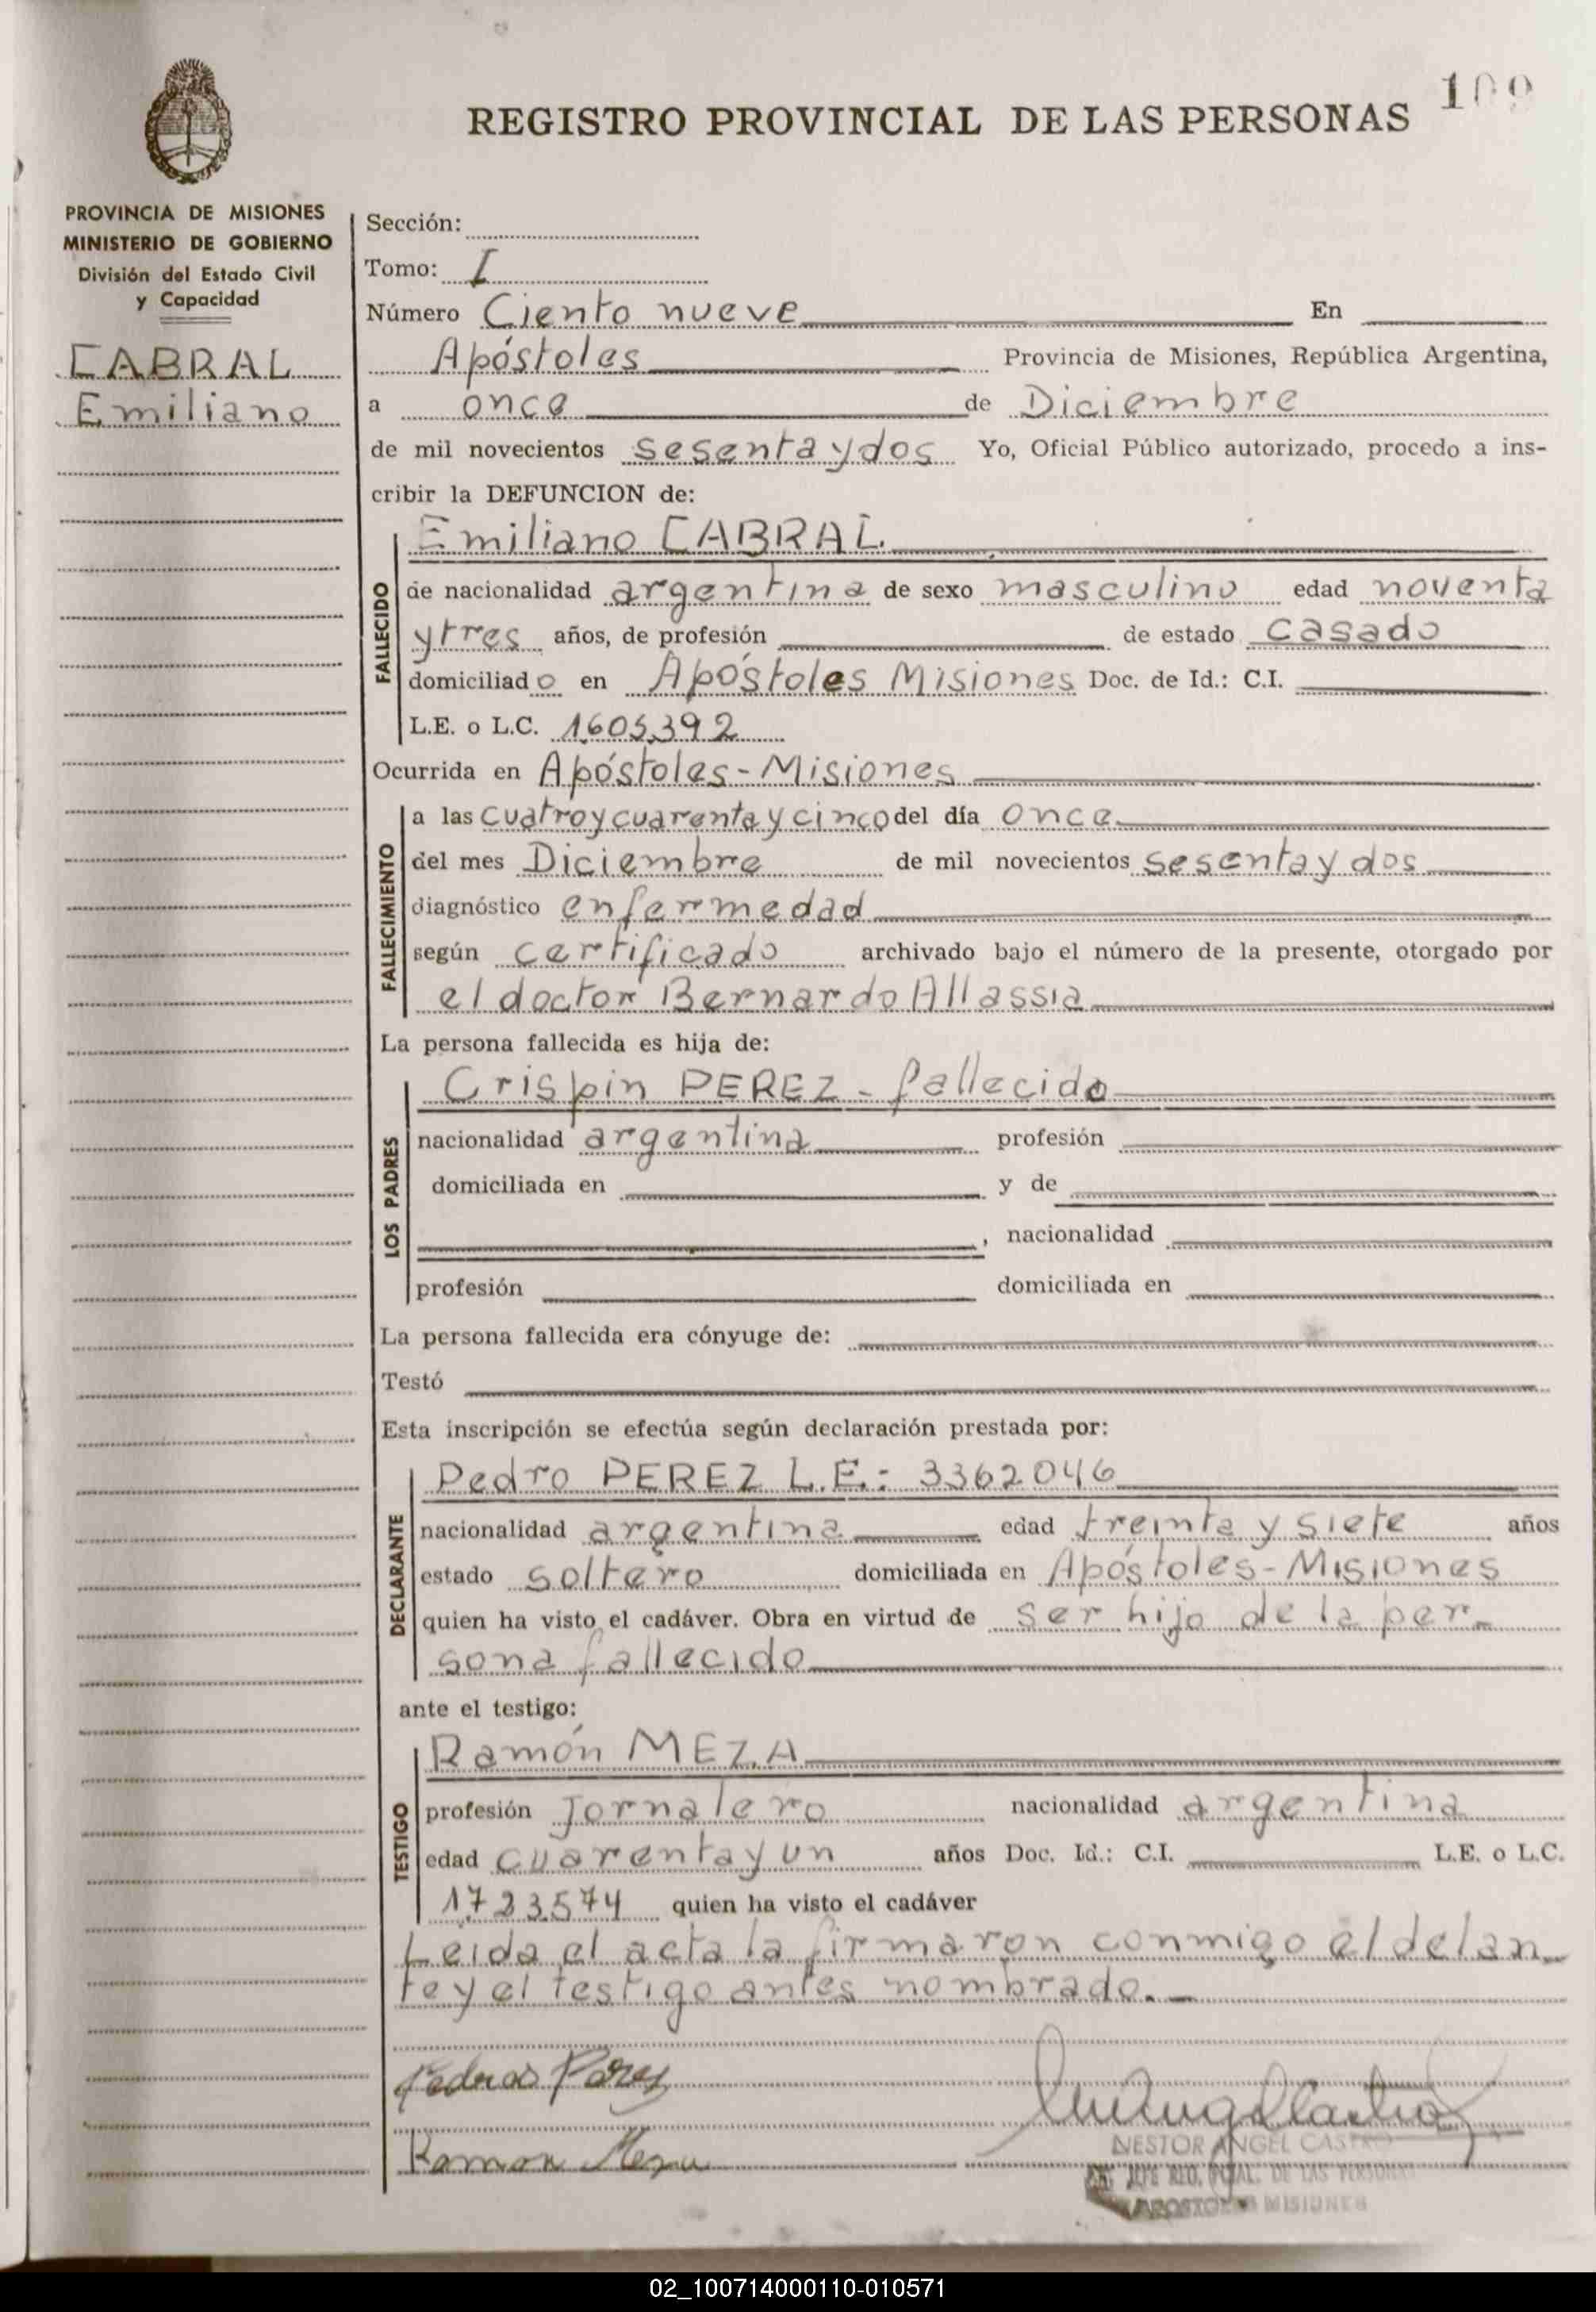 109
REGISTRO PROVINCIAL DE LAS PERSONAS
PROVINCIA DE MISIONES
MINISTERIO DE GOBIERNO
División del Estado Civil
y Capacidad
CABRAL
Emiliano
Sección:
Tomo: I
Número Ciento nueve En
Apóstoles Provincia de Misiones, República Argentina,
a once de Diciembre
de mil novecientos sesenta y dos Yo, Oficial Público autorizado, procedo a ins-
cribir la DEFUNCION de:
Emiliano CABRAL.
FALLECIDO
de nacionalidad argentina de sexo masculino edad noventa
y tres años, de profesión de estado casado
domiciliado en Apóstoles Misiones Doc. de Id.: C.I.
L.E. o L.C. 1.605.392
Ocurrida en Apóstoles - Misiones
FALLECIMIENTO
a las cuatro y cuarenta y cinco del día once
del mes Diciembre de mil novecientos sesenta y dos
diagnóstico enfermedad
según certificado archivado bajo el número de la presente, otorgado por
el doctor Bernardo Allassia
La persona fallecida es hija de:
LOS PADRES
Crispin PEREZ - fallecido
nacionalidad argentina profesión
domiciliada en y de
, nacionalidad
profesión domiciliada en
La persona fallecida era cónyuge de:
Testó
Esta inscripción se efectúa según declaración prestada por:
DECLARANTE
Pedro PEREZ L.E.: 3362046
nacionalidad argentina edad treinta y siete años
estado soltero domiciliada en Apóstoles - Misiones
quien ha visto el cadáver. Obra en virtud de ser hijo de la per-
sona fallecido
ante el testigo:
TESTIGO
Ramón MEZA
profesión Jornalero nacionalidad argentina
edad cuarenta y un años Doc. Id.: C.I. L.E. o L.C.
1.723.574 quien ha visto el cadáver
Leida el acta la firmaron conmigo el delan-
te y el testigo antes nombrado. -
Ramon Meza
NESTOR ANGEL CASTRO
JEFE REG. PCIAL. DE LAS PERSONAS
APOSTOLES MISIONES
02_100714000110-010571